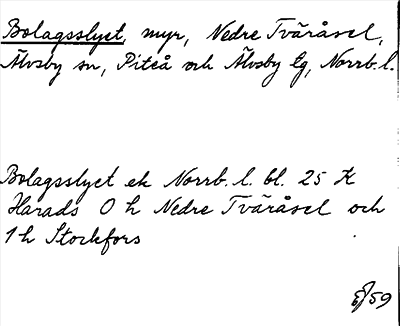 Bolagsslyet, myr, Nedre Tväråsel,
Älvsby sn, Piteå och Älvsby lg, Norrb. l.
Bolagsslyet ek Norrb. l. bl. 25 K
Harads O h Nedre Tväråsel och
1 h Stockfors
59